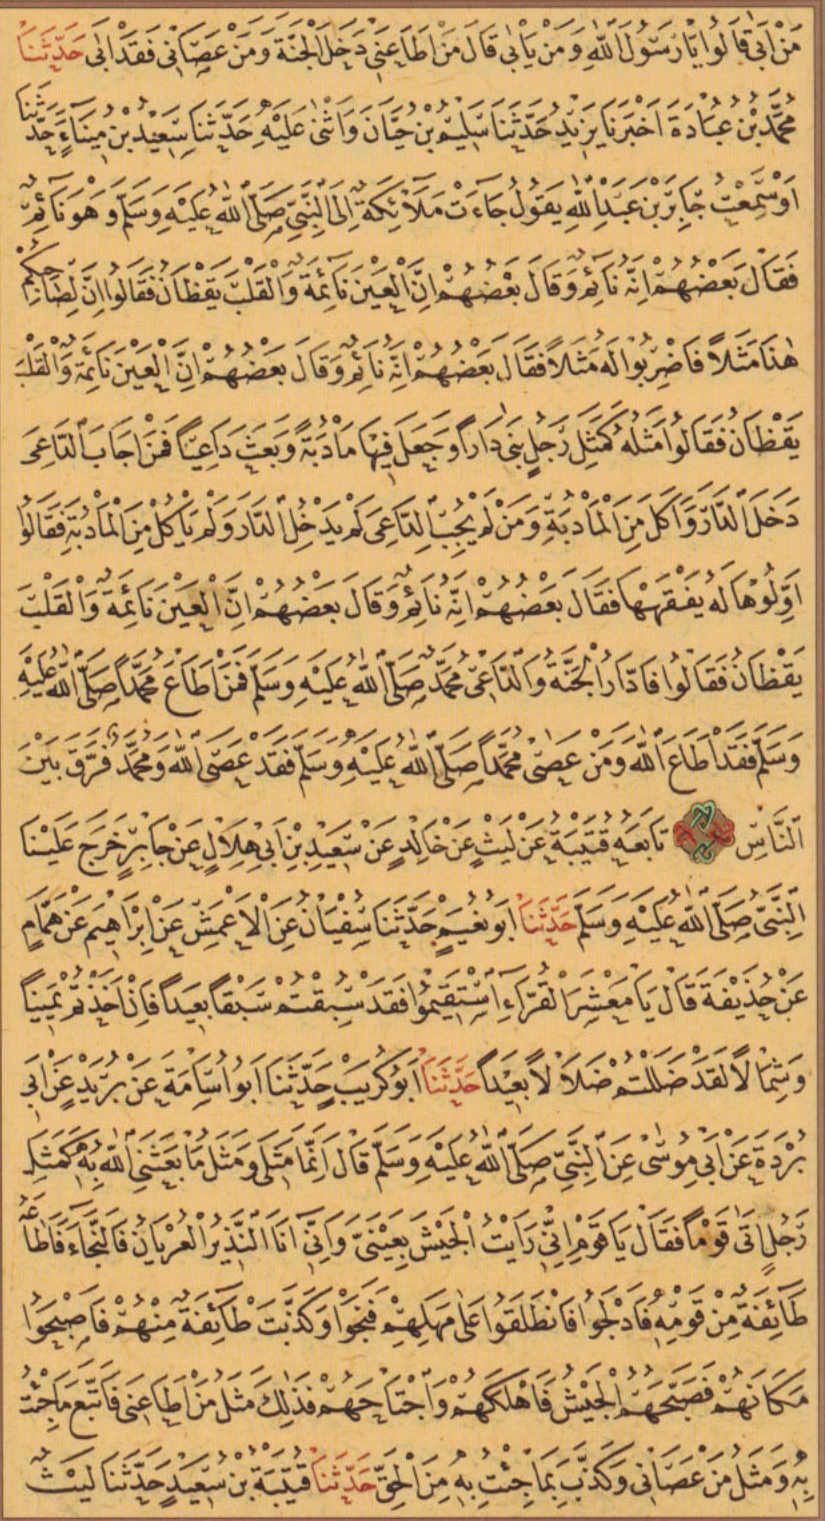 مَنْ اَبٰى قَالُوا يَا رَسُولَ اللّٰهِ وَمَنْ يَأْبٰى قَالَ مَنْ اَطَاعَنِي دَخَلَ الْجَنَّةَ وَمَنْ عَصَانِي فَقَدْ اَبٰى حَدَّثَنَا
مُحَمَّدُ بْنُ عُبَادَةَ اَخْبَرَنَا يَزِيدُ حَدَّثَنَا سَلِيمُ بْنُ حَيَّانَ وَاَثْنٰى عَلَيْهِ حَدَّثَنَا سَعِيدُ بْنُ مِينَاءَ حَدَّثَنَا
اَوْ سَمِعْتُ جَابِرَ بْنَ عَبْدِ اللّٰهِ يَقُولُ جَاءَتْ مَلَائِكَةٌ اِلَى النَّبِيِّ صَلَّى اللّٰهُ عَلَيْهِ وَسَلَّمَ وَهُوَ نَائِمٌ
فَقَالَ بَعْضُهُمْ اِنَّهُ نَائِمٌ وَقَالَ بَعْضُهُمْ اِنَّ الْعَيْنَ نَائِمَةٌ وَالْقَلْبَ يَقْظَانُ فَقَالُوا اِنَّ لِصَاحِبِكُمْ
هٰذَا مَثَلًا فَاضْرِبُوا لَهُ مَثَلًا فَقَالَ بَعْضُهُمْ اِنَّهُ نَائِمٌ وَقَالَ بَعْضُهُمْ اِنَّ الْعَيْنَ نَائِمَةٌ وَالْقَلْبَ
يَقْظَانُ فَقَالُوا مَثَلُهُ كَمَثَلِ رَجُلٍ بَنٰى دَارًا وَجَعَلَ فِيهَا مَأْدُبَةً وَبَعَثَ دَاعِيًا فَمَنْ اَجَابَ الدَّاعِيَ
دَخَلَ الدَّارَ وَاَكَلَ مِنَ الْمَأْدُبَةِ وَمَنْ لَمْ يُجِبِ الدَّاعِيَ لَمْ يَدْخُلِ الدَّارَ وَلَمْ يَأْكُلْ مِنَ الْمَأْدُبَةِ فَقَالُوا
اَوِّلُوهَا لَهُ يَفْقَهْهَا فَقَالَ بَعْضُهُمْ اِنَّهُ نَائِمٌ وَقَالَ بَعْضُهُمْ اِنَّ الْعَيْنَ نَائِمَةٌ وَالْقَلْبَ
يَقْظَانُ فَقَالُوا فَالدَّارُ الْجَنَّةُ وَالدَّاعِي مُحَمَّدٌ صَلَّى اللّٰهُ عَلَيْهِ وَسَلَّمَ فَمَنْ اَطَاعَ مُحَمَّدًا صَلَّى اللّٰهُ عَلَيْهِ
وَسَلَّمَ فَقَدْ اَطَاعَ اللّٰهَ وَمَنْ عَصٰى مُحَمَّدًا صَلَّى اللّٰهُ عَلَيْهِ وَسَلَّمَ فَقَدْ عَصَى اللّٰهَ وَمُحَمَّدٌ فَرَّقَ بَيْنَ
النَّاسِ تَابَعَهُ قُتَيْبَةُ عَنْ لَيْثٍ عَنْ خَالِدٍ عَنْ سَعِيدِ بْنِ اَبِي هِلَالٍ عَنْ جَابِرٍ خَرَجَ عَلَيْنَا
النَّبِيُّ صَلَّى اللّٰهُ عَلَيْهِ وَسَلَّمَ حَدَّثَنَا اَبُو نُعَيْمٍ حَدَّثَنَا سُفْيَانُ عَنِ الْاَعْمَشِ عَنْ اِبْرَاهِيمَ عَنْ هَمَّامٍ
عَنْ حُذَيْفَةَ قَالَ يَا مَعْشَرَ الْقُرَّاءِ اسْتَقِيمُوا فَقَدْ سُبِقْتُمْ سَبْقًا بَعِيدًا فَاِنْ اَخَذْتُمْ يَمِينًا
وَشِمَالًا لَقَدْ ضَلَلْتُمْ ضَلَالًا بَعِيدًا حَدَّثَنَا اَبُو كُرَيْبٍ حَدَّثَنَا اَبُو اُسَامَةَ عَنْ بُرَيْدٍ عَنْ اَبِي
بُرْدَةَ عَنْ اَبِي مُوسٰى عَنِ النَّبِيِّ صَلَّى اللّٰهُ عَلَيْهِ وَسَلَّمَ قَالَ اِنَّمَا مَثَلِي وَمَثَلُ مَا بَعَثَنِي اللّٰهُ بِهِ كَمَثَلِ
رَجُلٍ اَتٰى قَوْمًا فَقَالَ يَا قَوْمِ اِنِّي رَاَيْتُ الْجَيْشَ بِعَيْنَيَّ وَاِنِّي اَنَا النَّذِيرُ الْعُرْيَانُ فَالنَّجَاءَ فَاَطَاعَهُ
طَائِفَةٌ مِنْ قَوْمِهِ فَاَدْلَجُوا فَانْطَلَقُوا عَلٰى مَهَلِهِمْ فَنَجَوْا وَكَذَّبَتْ طَائِفَةٌ مِنْهُمْ فَاَصْبَحُوا
مَكَانَهُمْ فَصَبَّحَهُمُ الْجَيْشُ فَاَهْلَكَهُمْ وَاجْتَاحَهُمْ فَذٰلِكَ مَثَلُ مَنْ اَطَاعَنِي فَاتَّبَعَ مَا جِئْتُ
بِهِ وَمَثَلُ مَنْ عَصَانِي وَكَذَّبَ بِمَا جِئْتُ بِهِ مِنَ الْحَقِّ حَدَّثَنَا قُتَيْبَةُ بْنُ سَعِيدٍ حَدَّثَنَا لَيْثٌ